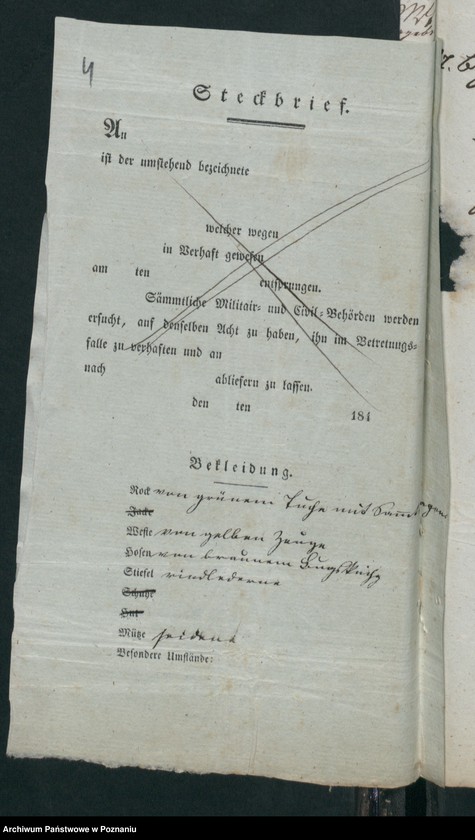 4
Steckbrief.
An
ist der umstehend bezeichnete
welcher wegen
in Verhaft gewesen
am ten entsprungen.
Sämmtliche Militair- und Civil-Behörden werden
ersucht, auf denselben Acht zu haben, ihn im Betretungs-
falle zu verhaften und an
nach abliefern zu lassen.
den ten 184
Bekleidung.
Rock von grünem Tuche mit
Jacke
Weste von gelben Zeuge
Hosen von braunem
Stiefel rindlederne
Schuhe
Hut
Mütze seidene
Besondere Umstände:
Archiwum Państwowe w Poznaniu